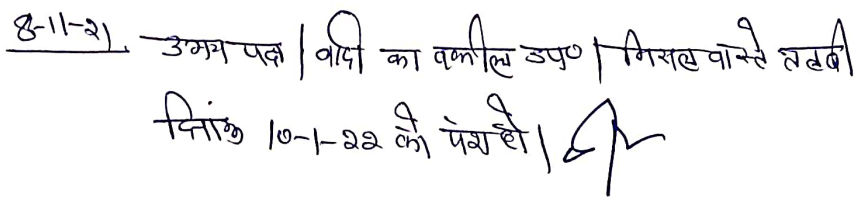 8-11-21 उभय पक्ष | वादी का वकील उप० | मिसल वास्ते तलबी
दिनांक 10-1-22 को पेश हो |